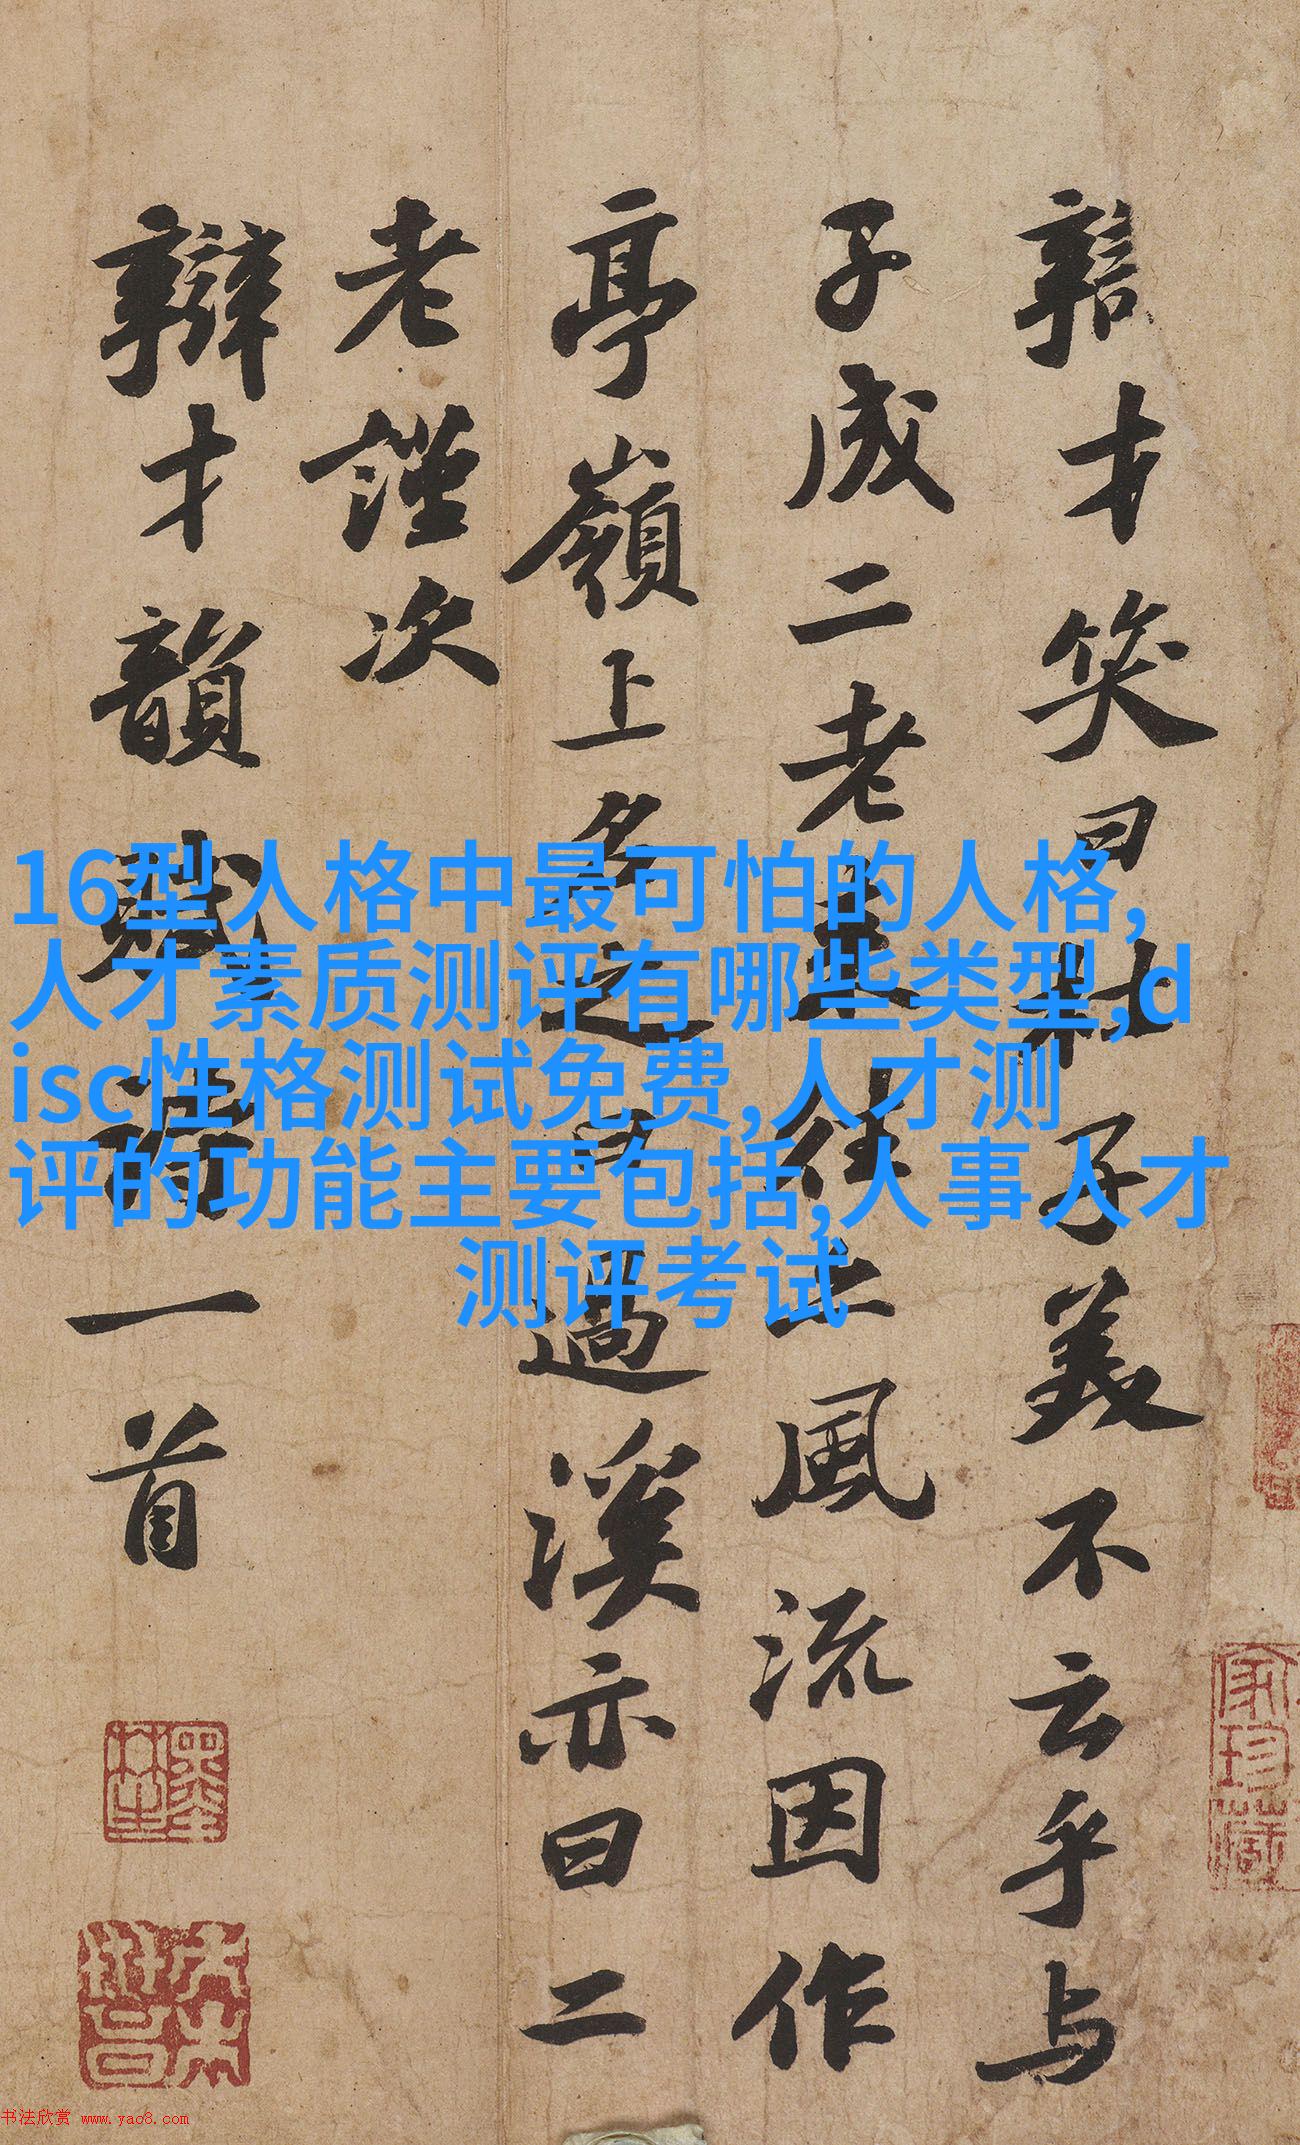 辯才笑曰杜子美不云乎与
子成二老來往亦風流因作
亭嶺上名之曰過溪亦曰二
老謹次
辯才韻賦詩一首
16型人格中最可怕的人格,
人才素质测评有哪些类型,d
isc性格测试免费,人才测
评的功能主要包括,人事人才
测评考试
家珍藏
书法欣赏 www.yac8.com